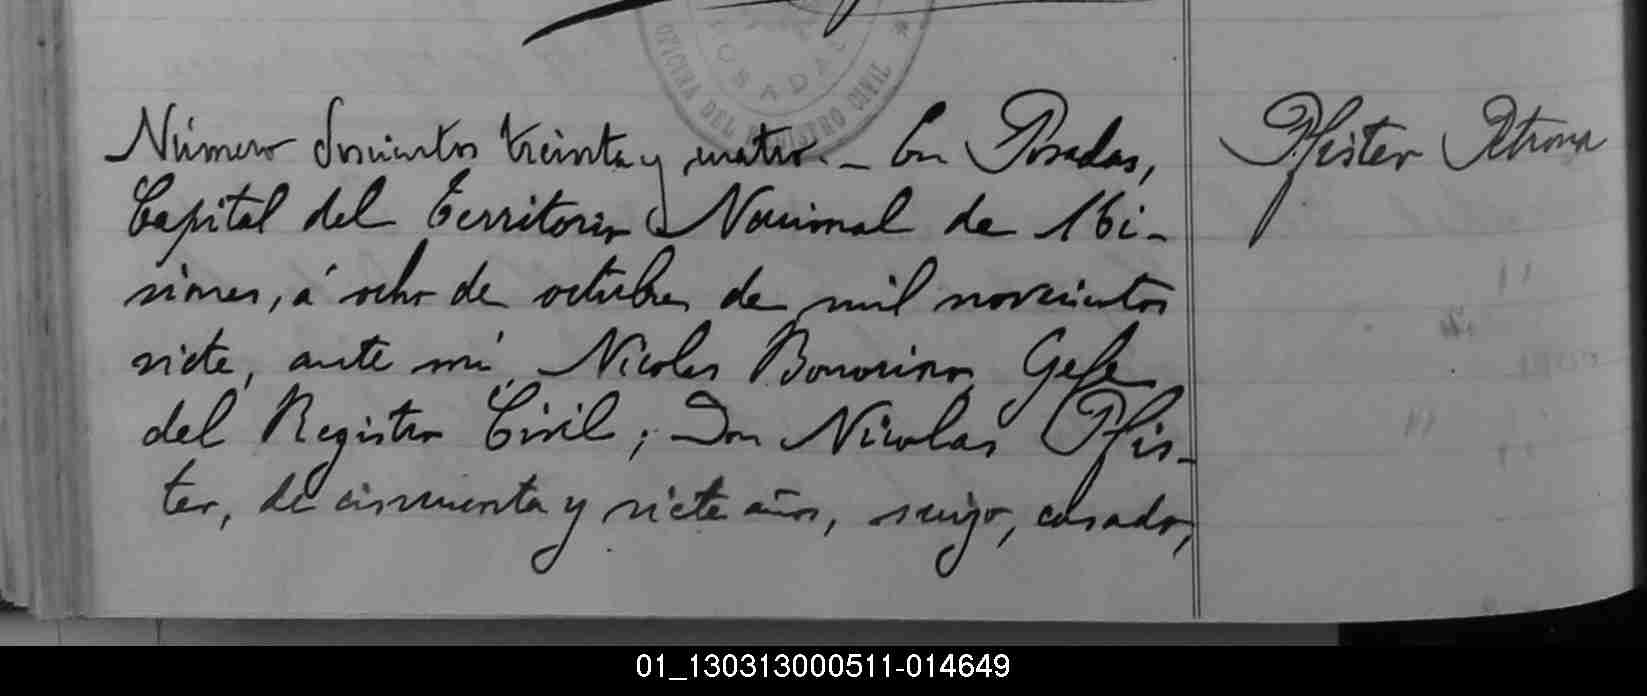 POSADAS
OFICINA DEL REGISTRO CIVIL *
Número doscientos treinta y cuatro. - En Posadas,
Capital del Territorio Nacional de Mi-
siones, á ocho de octubre de mil novecientos
siete, ante mi, Nicolas Bonorino, Gefe
del Registro Civil; Don Nicolas Pfis-
ter, de cincuenta y siete años, suizo, casado,
Pfister Petrona
01_130313000511-014649